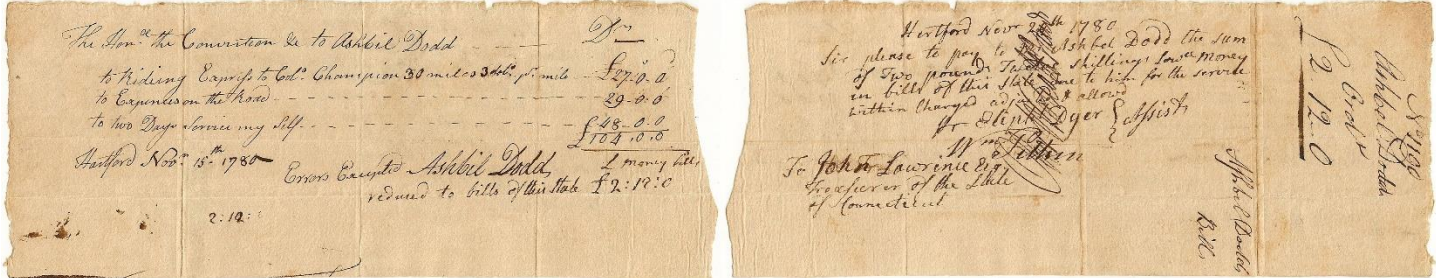 The Honble the Convention &c to Ashbil Dodd - - - - Dr
to Riding Express to Colo. Champion 30 miles 3 dolrs. pr. mile £27..0..0
to Expences on the Road - - - - 29..0..0
to two Days Service my Self - - - - £48..0..0
£104..0..0
Hartford Novr. 15th 1780
L money bills
Errors Excepted Ashbil Dodd
reduced to bills of this State £2:12:0
2:12:
Hertford Novr 1780
Sir please to pay to Ashbel Dodd the sum
of Two pounds Twelve shillings Lawll money
in bills of this State due to him for the service
within Charged & allowd
Eliph Dyer } Assists
Wm Pitkin
To John Lawrence Esqr
Treasurer of the State
of Connecticut
Ashbel Dodds
Bill
£2-12-0
Ordr
Ashbel Dodds
No